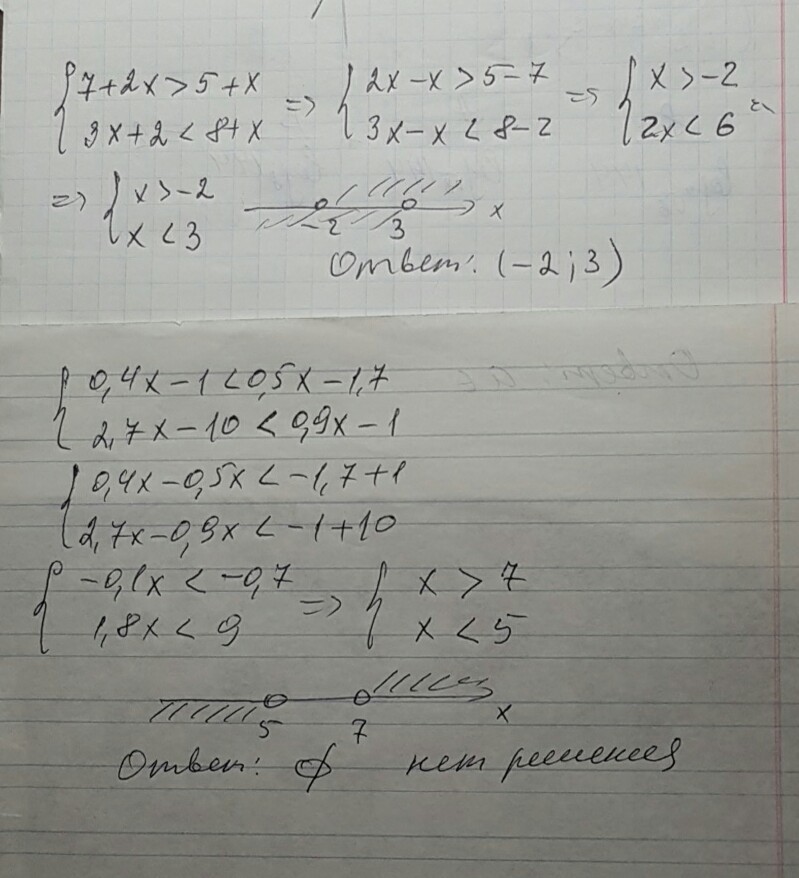 {7+2x>5+x => {2x-x>5-7 => {x>-2
{3x+2<8+x {3x-x<8-2 {2x<6 =>
=> {x>-2
{x<3
-2 3 x
Ответ: (-2;3)
{0,4x-1<0,5x-1,7
{2,7x-10<0,9x-1
{0,4x-0,5x<-1,7+1
{2,7x-0,9x<-1+10
{-0,1x<-0,7 => {x>7
{1,8x<9 {x<5
5 7 x
Ответ: ∅ нет решения